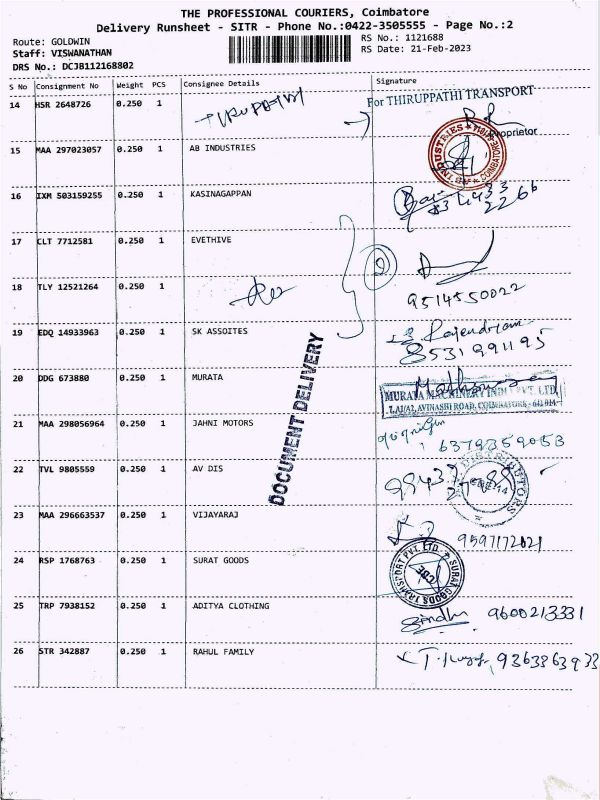 THE PROFESSIONAL COURIERS, Coimbatore
Delivery Runsheet - SITR - Phone No.:0422-3505555 - Page No.:2
Route: GOLDWIN
RS No.: 1121688
Staff: VISWANATHAN
RS Date: 21-Feb-2023
DRS No.: DCJB112168802
S No Consignment No Weight PCS Consignee Details Signature
14 HSR 2648726 0.250 1
For THIRUPPATHI TRANSPORT
Proprietor
15 MAA 297023057 0.250 1 AB INDUSTRIES
16 IXM 503159255 0.250 1 KASINAGAPPAN
17 CLT 7712581 0.250 1 EVETHIVE
18 TLY 12521264 0.250 1 9514550022
19 EDQ 14933963 0.250 1 SK ASSOITES Rajendran
8531991195
DOCUMENT DELIVERY
20 DDG 673880 0.250 1 MURATA
MURATA MACHINERY INDIA PVT. LTD.
AVINASHI ROAD, COIMBATORE - 641014
21 MAA 298056964 0.250 1 JAHNI MOTORS 6379359053
22 TVL 9805559 0.250 1 AV DIS
23 MAA 296663537 0.250 1 VIJAYARAJ 9597172021
24 RSP 1768763 0.250 1 SURAT GOODS
SURAT GOODS TRANSPORT PVT. LTD.
25 TRP 7938152 0.250 1 ADITYA CLOTHING Sindhu 9600213331
26 STR 342887 0.250 1 RAHUL FAMILY 9363363933